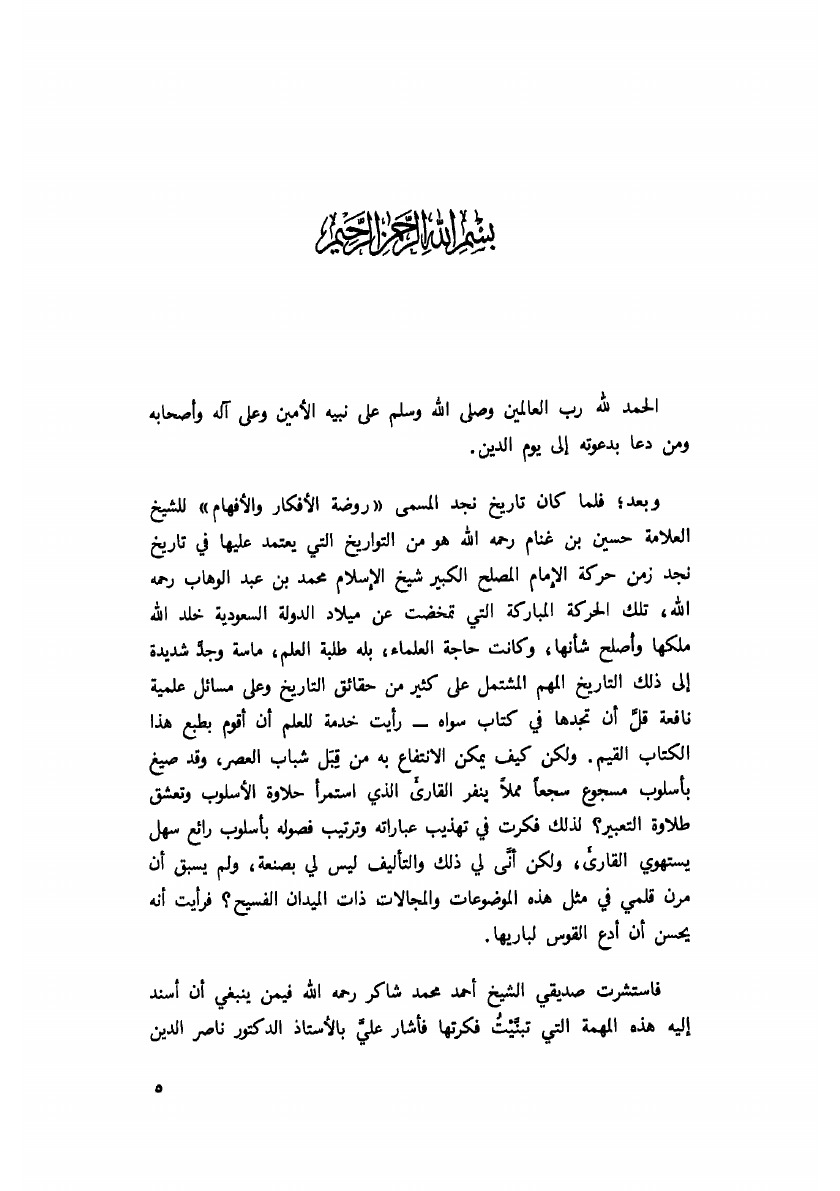 بِسْمِ اللهِ الرَّحْمٰنِ الرَّحِيْمِ
الحمد لله رب العالمين وصلى الله وسلم على نبيه الأمين وعلى آله وأصحابه
ومن دعا بدعوته إلى يوم الدين.
وبعد؛ فلما كان تاريخ نجد المسمى «روضة الأفكار والأفهام» للشيخ
العلامة حسين بن غنام رحمه الله هو من التواريخ التي يعتمد عليها في تاريخ
نجد زمن حركة الإمام المصلح الكبير شيخ الإسلام محمد بن عبد الوهاب رحمه
الله، تلك الحركة المباركة التي تمخضت عن ميلاد الدولة السعودية خلد الله
ملكها وأصلح شأنها، وكانت حاجة العلماء، بله طلبة العلم، ماسة وجدَّ شديدة
إلى ذلك التاريخ المهم المشتمل على كثير من حقائق التاريخ وعلى مسائل علمية
نافعة قلَّ أن تجدها في كتاب سواه ــ رأيت خدمة للعلم أن أقوم بطبع هذا
الكتاب القيم. ولكن كيف يمكن الانتفاع به من قِبَل شباب العصر، وقد صيغ
بأسلوب مسجوع سجعاً مملاً ينفر القارئ الذي استمرأ حلاوة الأسلوب وتعشق
طلاوة التعبير؟ لذلك فكرت في تهذيب عباراته وترتيب فصوله بأسلوب رائع سهل
يستهوي القارئ، ولكن أنَّى لي ذلك والتأليف ليس لي بصنعة، ولم يسبق أن
مرن قلمي في مثل هذه الموضوعات والمجالات ذات الميدان الفسيح؟ فرأيت أنه
يحسن أن أدع القوس لباريها.
فاستشرت صديقي الشيخ أحمد محمد شاكر رحمه الله فيمن ينبغي أن أسند
إليه هذه المهمة التي تبنَّيْتُ فكرتها فأشار عليَّ بالأستاذ الدكتور ناصر الدين
٥